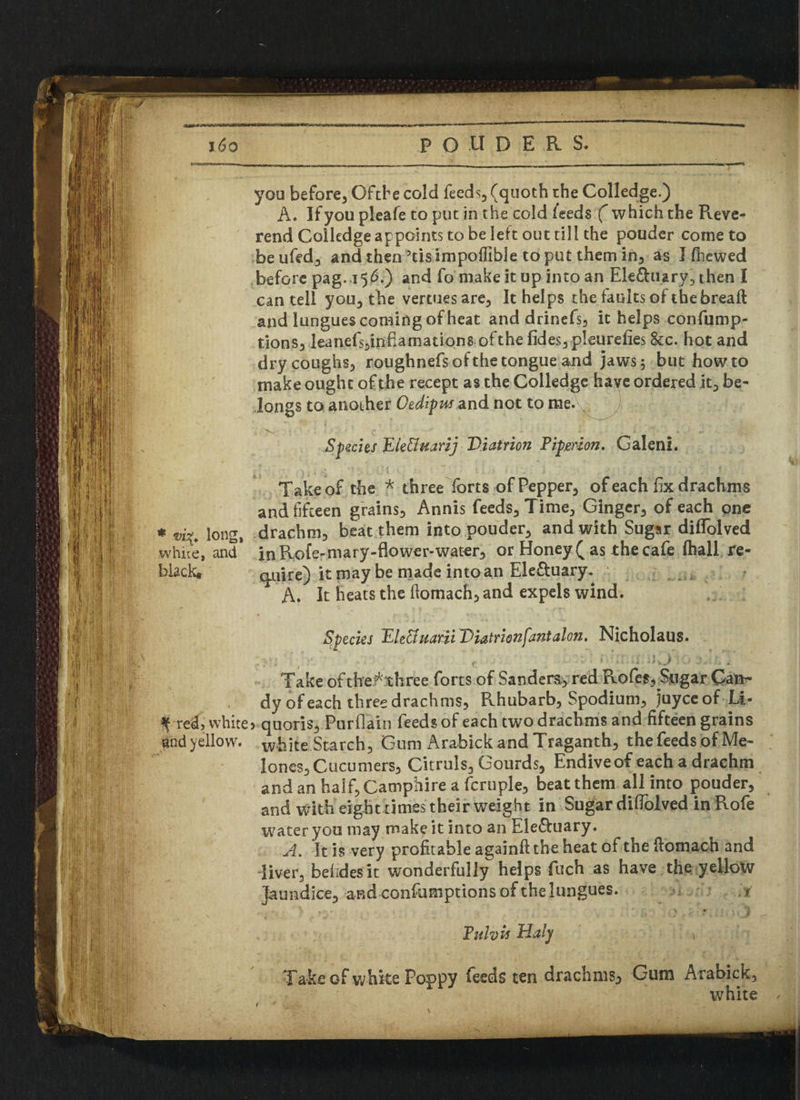 160 POUDERS.
you before, Of the cold ſeeds, (quoth the Colledge.)
A. If you pleaſe to put in the cold ſeeds (which the Reve-
rend Colledge appoints to be left out till the pouder come to
be uſed, and then 'tis impoſſible to put them in, as I ſhewed
before pag. 156.) and ſo make it up into an Electuary, then I
can tell you, the vertues are, It helps the faults of the breaſt
and lungues coming of heat and drineſs, it helps conſump-
tions, leaneſs, inflamations of the ſides, pleureſies &c. hot and
dry coughs, roughneſs of the tongue and jaws; but how to
make ought of the recept as the Colledge have ordered it, be-
longs to another Oedipus and not to me.
Species Electuarij Diatrion Piperion. Galeni.
Take of the * three ſorts of Pepper, of each ſix drachms
and fifteen grains, Annis ſeeds, Time, Ginger, of each one
* viz. long, drachm, beat them into pouder, and with Sugar diſſolved
white, and in Roſe-mary-flower-water, or Honey (as the caſe ſhall re-
black. quire) it may be made into an Electuary.
A. It heats the ſtomach, and expels wind.
Species Electuarii Diatrionſantalon. Nicholaus.
Take of the * three ſorts of Sanders, red Roſes, Sugar Can-
dy of each three drachms, Rhubarb, Spodium, juyce of Li-
* red, white, quoris, Purſlain ſeeds of each two drachms and fifteen grains
and yellow. white Starch, Gum Arabick and Traganth, the ſeeds of Me-
lones, Cucumers, Citruls, Gourds, Endive of each a drachm
and an half, Camphire a ſcruple, beat them all into pouder,
and with eight times their weight in Sugar diſſolved in Roſe
water you may make it into an Electuary.
A. It is very profitable againſt the heat of the ſtomach and
liver, beſides it wonderfully helps ſuch as have the yellow
Jaundice, and conſumptions of the lungues.
Pulvis Haly
Take of white Poppy ſeeds ten drachms, Gum Arabick,
white